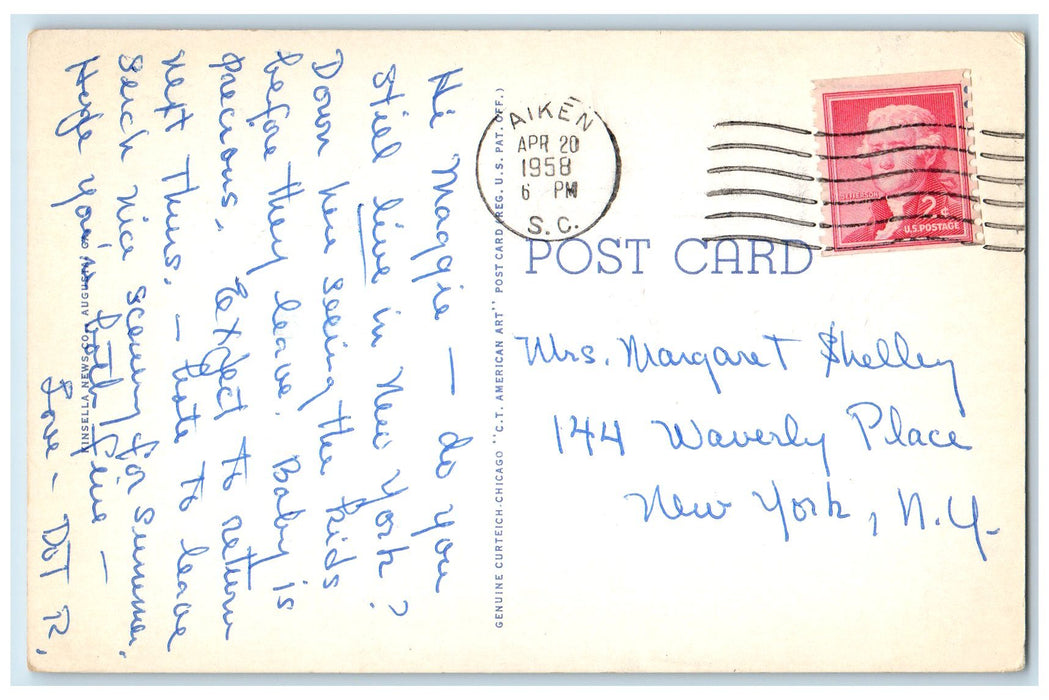 Hi Maggie — do you
still live in New York?
Down here seeing the kids
before they leave. Baby is
precious. Expect to return
next Thurs. — hate to leave
such nice scenery for summer.
Hope you're both fine —
Love — Dot R.
KINSELLA NEWS CO., AUGUSTA, GA.
GENUINE CURTEICH-CHICAGO "C.T. AMERICAN ART" POST CARD (REG. U.S. PAT. OFF.)
AIKEN
APR 20
1958
6 PM
S.C.
JEFFERSON
2¢
U.S. POSTAGE
POST CARD
Mrs. Margaret Shelley
144 Waverly Place
New York, N.Y.